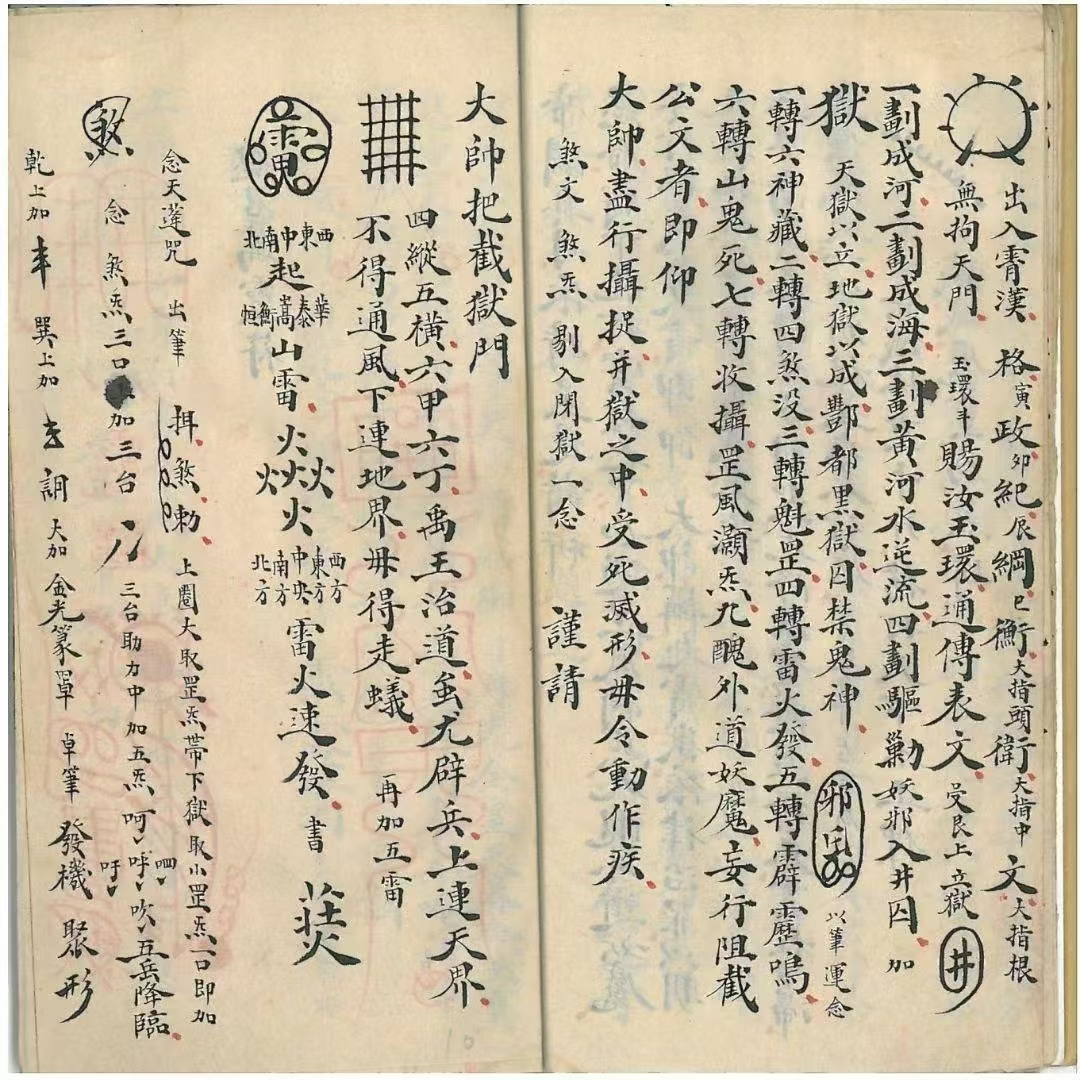 出入霄漢 格寅政卯紀辰綱巳衡大指頭衛大指中文大指根
無拘天門玉環斗賜汝玉環通傳表文 艮上立獄 井
一劃成河二劃成海三劃黃河水逆流四劃驅勦妖邪入井囚加
獄 天獄以立地獄以成酆都黑獄囚禁鬼神 邪鬼 以筆運念
一轉六神藏二轉四煞没三轉魁罡四轉雷火發五轉霹靂鳴
六轉山鬼死七轉收攝罡風灝炁九醜外道妖魔妄行阻截
公文者即仰
大帥盡行攝捉并獄之中受死滅形毋令動作疾
煞文煞炁剔入閉獄一念 謹請
大帥把截獄門
四縱五橫六甲六丁禹王治道蚩尤辟兵上連天界
不得通風下連地界毋得走蟻 再加五雷
西東中南北起華泰嵩衡恒山雷火火火火火西方東方中央南方北方雷火速發書
念天蓬咒 出筆 煞勅 上圈大取罡炁帶下獄取小罡炁一口即加
煞 念煞炁三口加三台 三台助力中加五炁呵呼呬吹吁五岳降臨
乾上加 巽上加 大加金光篆罩 卓筆 發機聚形